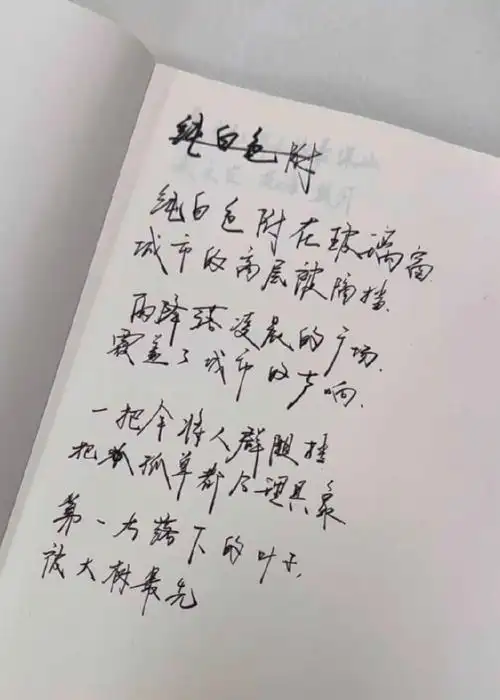 纯白色附
纯白色附在玻璃窗
城市的高层被隔挡
雨降 凌晨的广场
覆盖了城市的声响
一把伞将人群阻挡
把孤单都合理具象
第一片落下的叶子
被大树最先